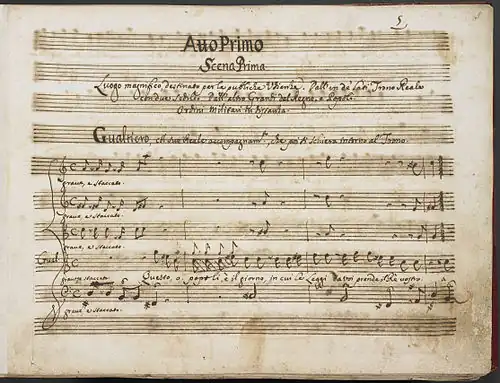 Atto Primo
Scena Prima
Luogo magnifico destinato per le publiche Udienze. Dall'un de Lati Trono Reale
con due Sedili. Dall'altro Grandi del Regno, e Popoli.
Ordini Militari in distanza.
Gualtiero, col suo Reale accompagnam.to che poi si schiera intorno al Trono.
grave, e staccato.
grave, e staccato.
grave, e staccato.
Gual
grave, e staccato
Questo, o popoli è il giorno, in cui le Leggi da voi prende il Rè vostro
grave, e staccato.